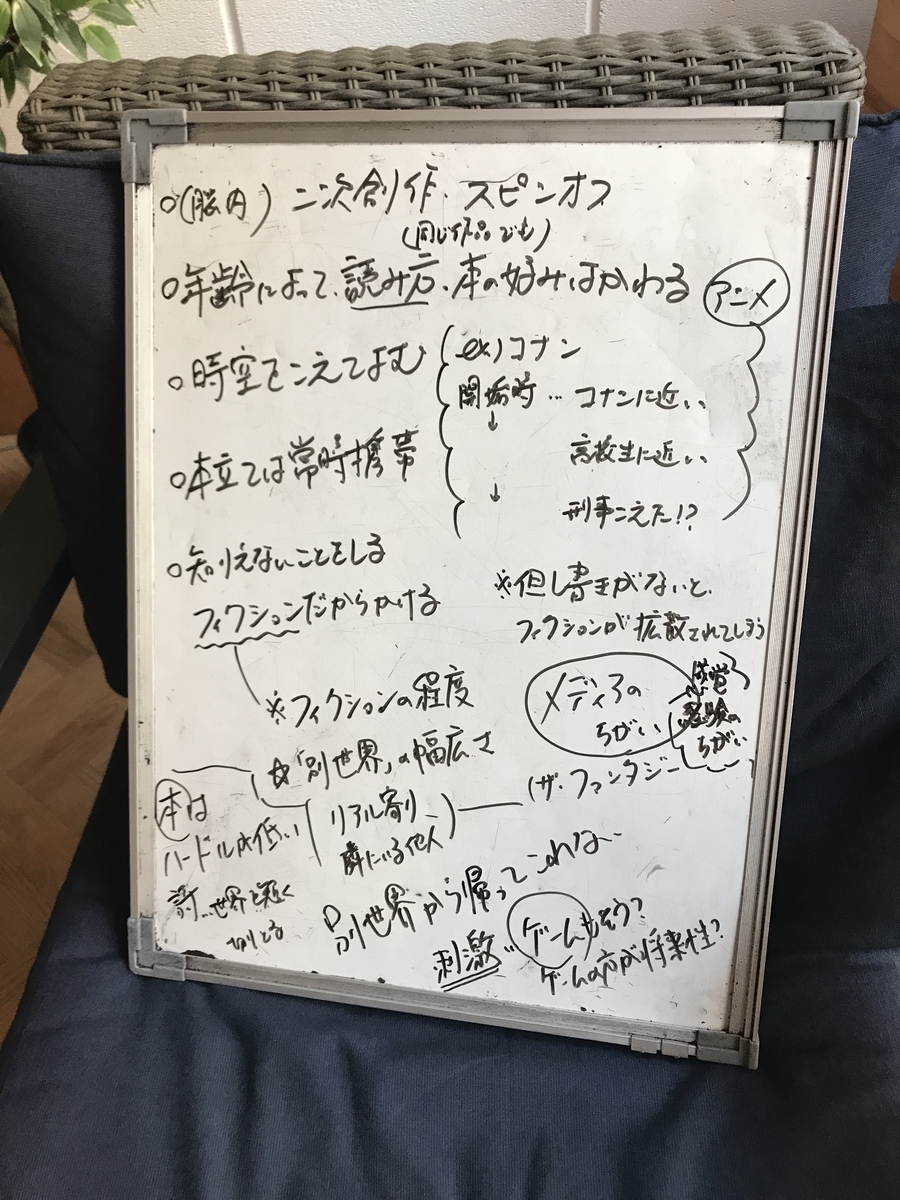 ○(脳内) 二次創作・スピンオフ
(同じ作品でも)
○年齢によって、読み方、本の好みはかわる
アニメ
○時空をこえてよむ
ex)コナン
開始時…コナンに近い
↓
高校生に近い
↓
刑事こえた!?
○本立ては常時携帯
○知りえないことをしる
フィクションだからかける
※但し書きがないと、
フィクションが拡散されてしまう
※フィクションの程度
メディアの
ちがい
感覚
経験の
ちがい
☆「別世界」の幅広さ
(ザ・ファンタジー
リアル寄り
隣にいる他人
本は
ハードルが低い
詩…世界を短く
切りとる
別世界から帰ってこれない
刺激
ゲームもそう?
ゲームの方が将来性?